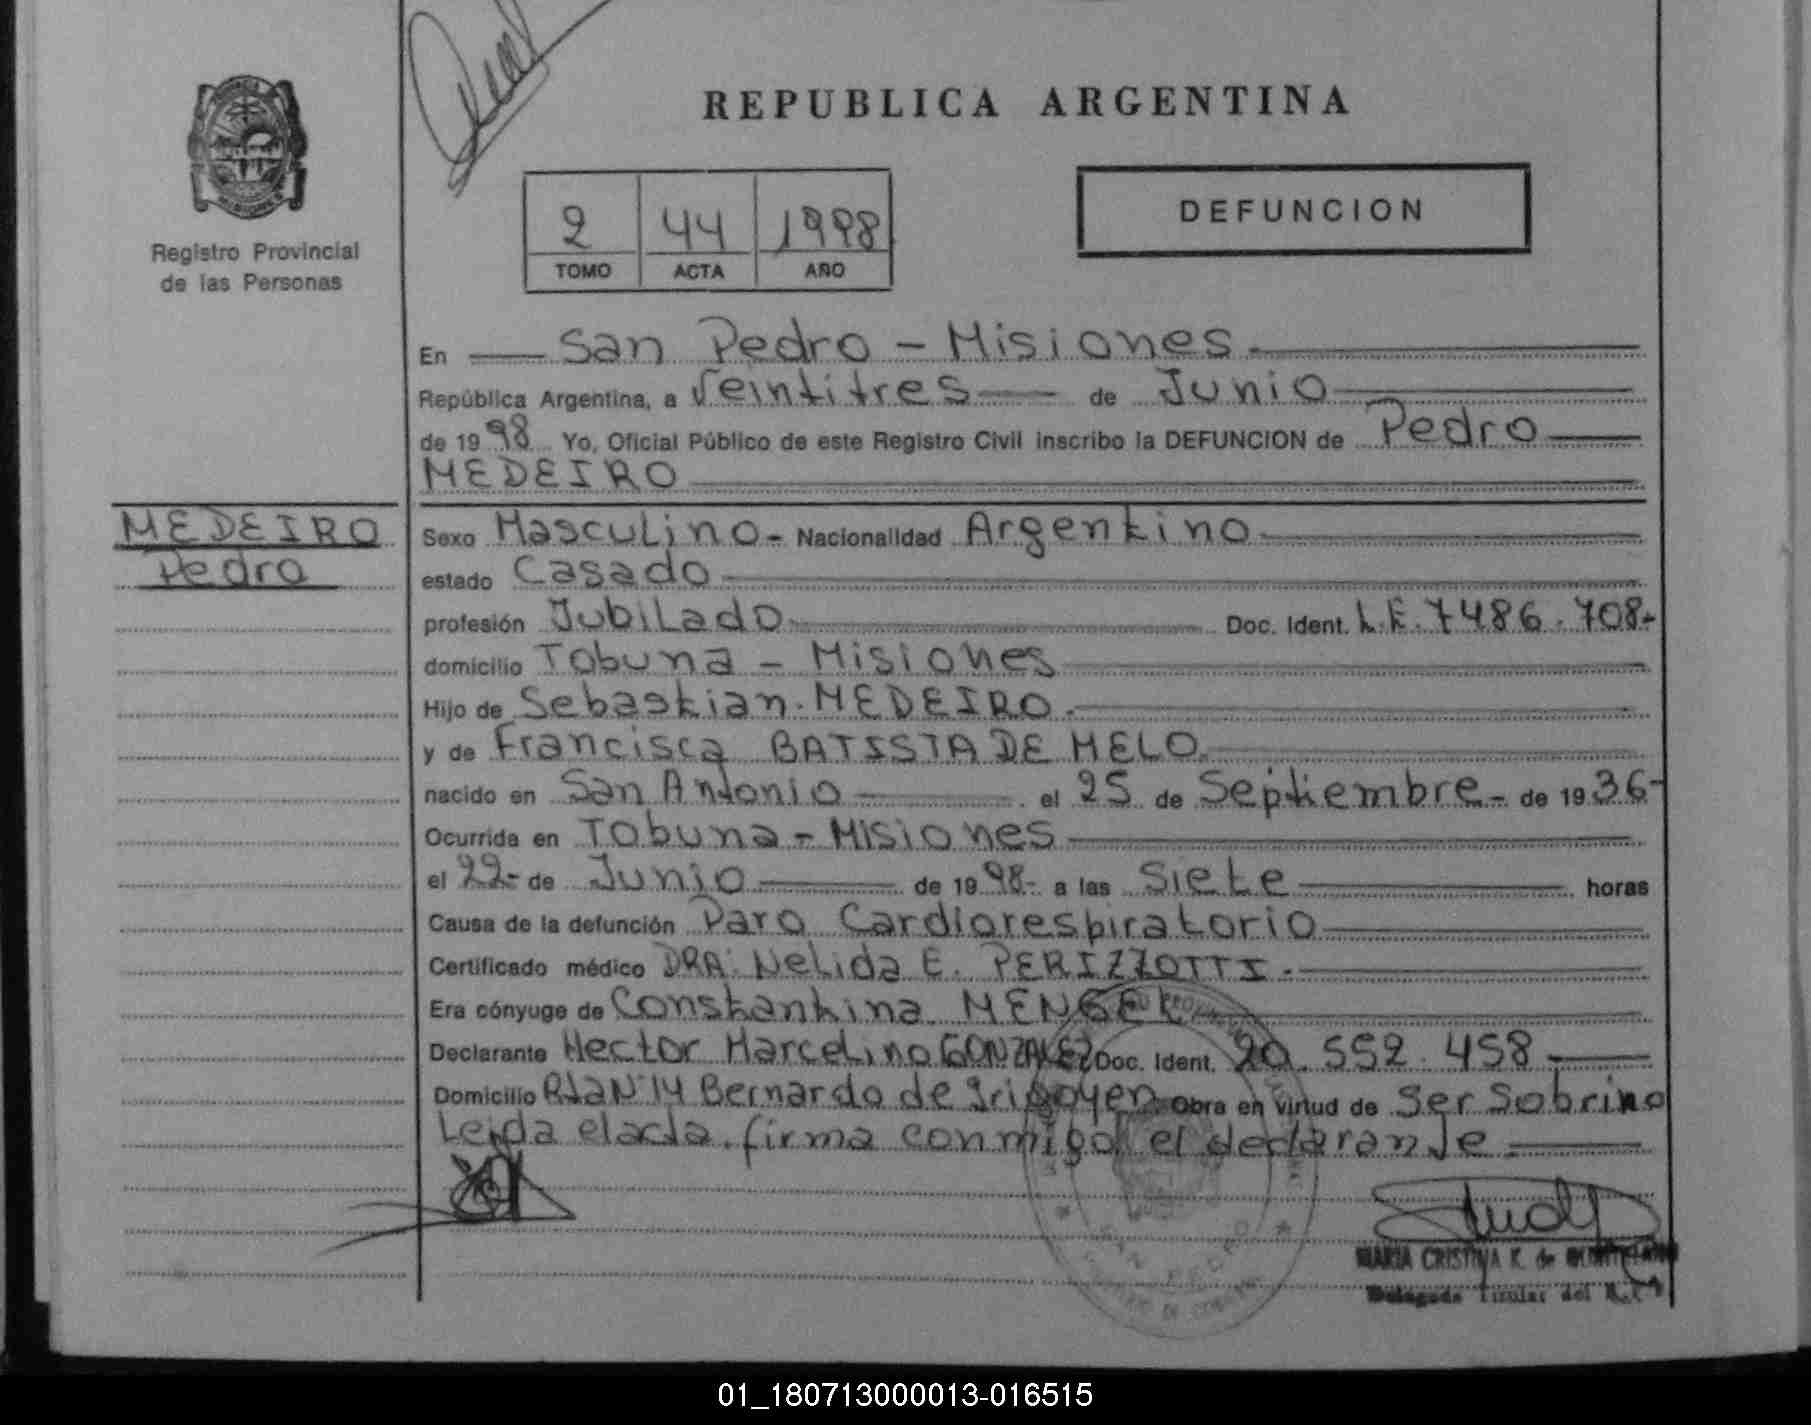 REPUBLICA ARGENTINA
Registro Provincial
de las Personas
2 44 1998
TOMO ACTA AÑO
DEFUNCION
En San Pedro - Misiones
República Argentina, a Veintitres de Junio
de 1998 Yo, Oficial Público de este Registro Civil inscribo la DEFUNCION de Pedro
MEDEIRO
MEDEIRO
Pedro
Sexo Masculino - Nacionalidad Argentino
estado Casado
profesión Jubilado Doc. Ident. L.E. 7486.708-
domicilio Tobuna - Misiones
Hijo de Sebastian. MEDEIRO.
y de Francisca BATISTA DE MELO.
nacido en San Antonio el 25 de Septiembre - de 1936-
Ocurrida en Tobuna - Misiones
el 22- de Junio de 1998- a las Siete horas
Causa de la defunción Paro Cardiorespiratorio
Certificado médico DRA: Nelida E. PERIZZOTTI.
Era cónyuge de Constantina MENGEL
Declarante Hector Marcelino GONZALEZ Doc. Ident. 20.552.458
Domicilio Bernardo de Irigoyen Obra en virtud de Ser Sobrino
Leida el acta. firma conmigo el declarante.
SAN PEDRO
MARIA CRISTINA K. de
Delegada Titular del
01_180713000013-016515